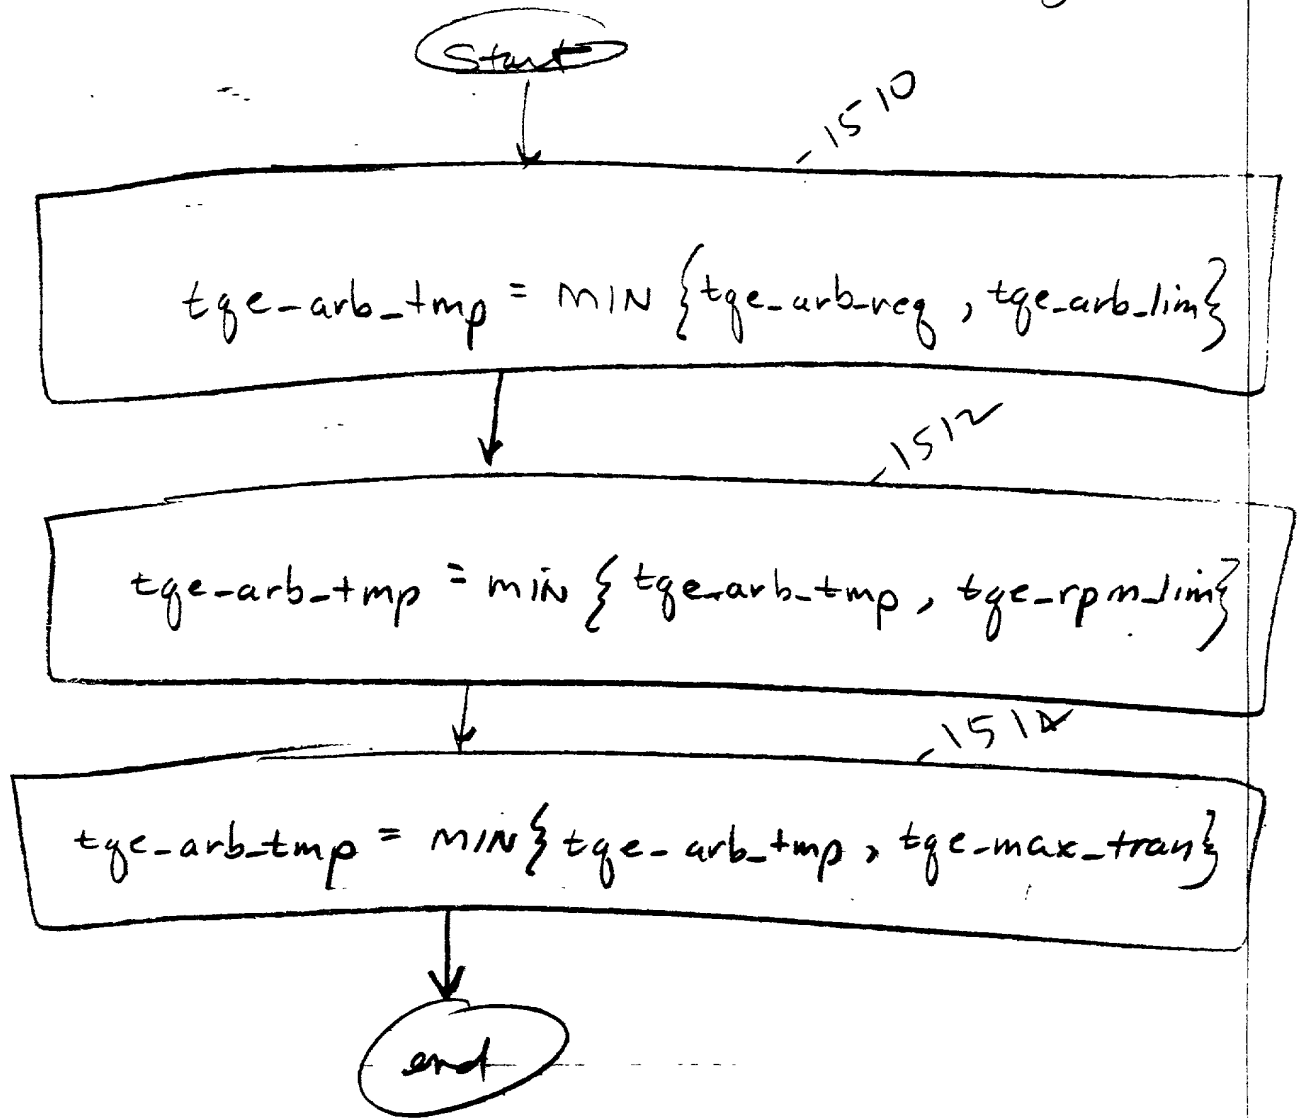 Start
1510
tqe_arb_tmp = MIN {tqe_arb_req, tqe_arb_lim}
1512
tqe_arb_tmp = min {tqe_arb_tmp, tqe_rpm_lim}
tqe_arb_tmp = MIN {tqe_arb_tmp, tqe_max_tran}
end